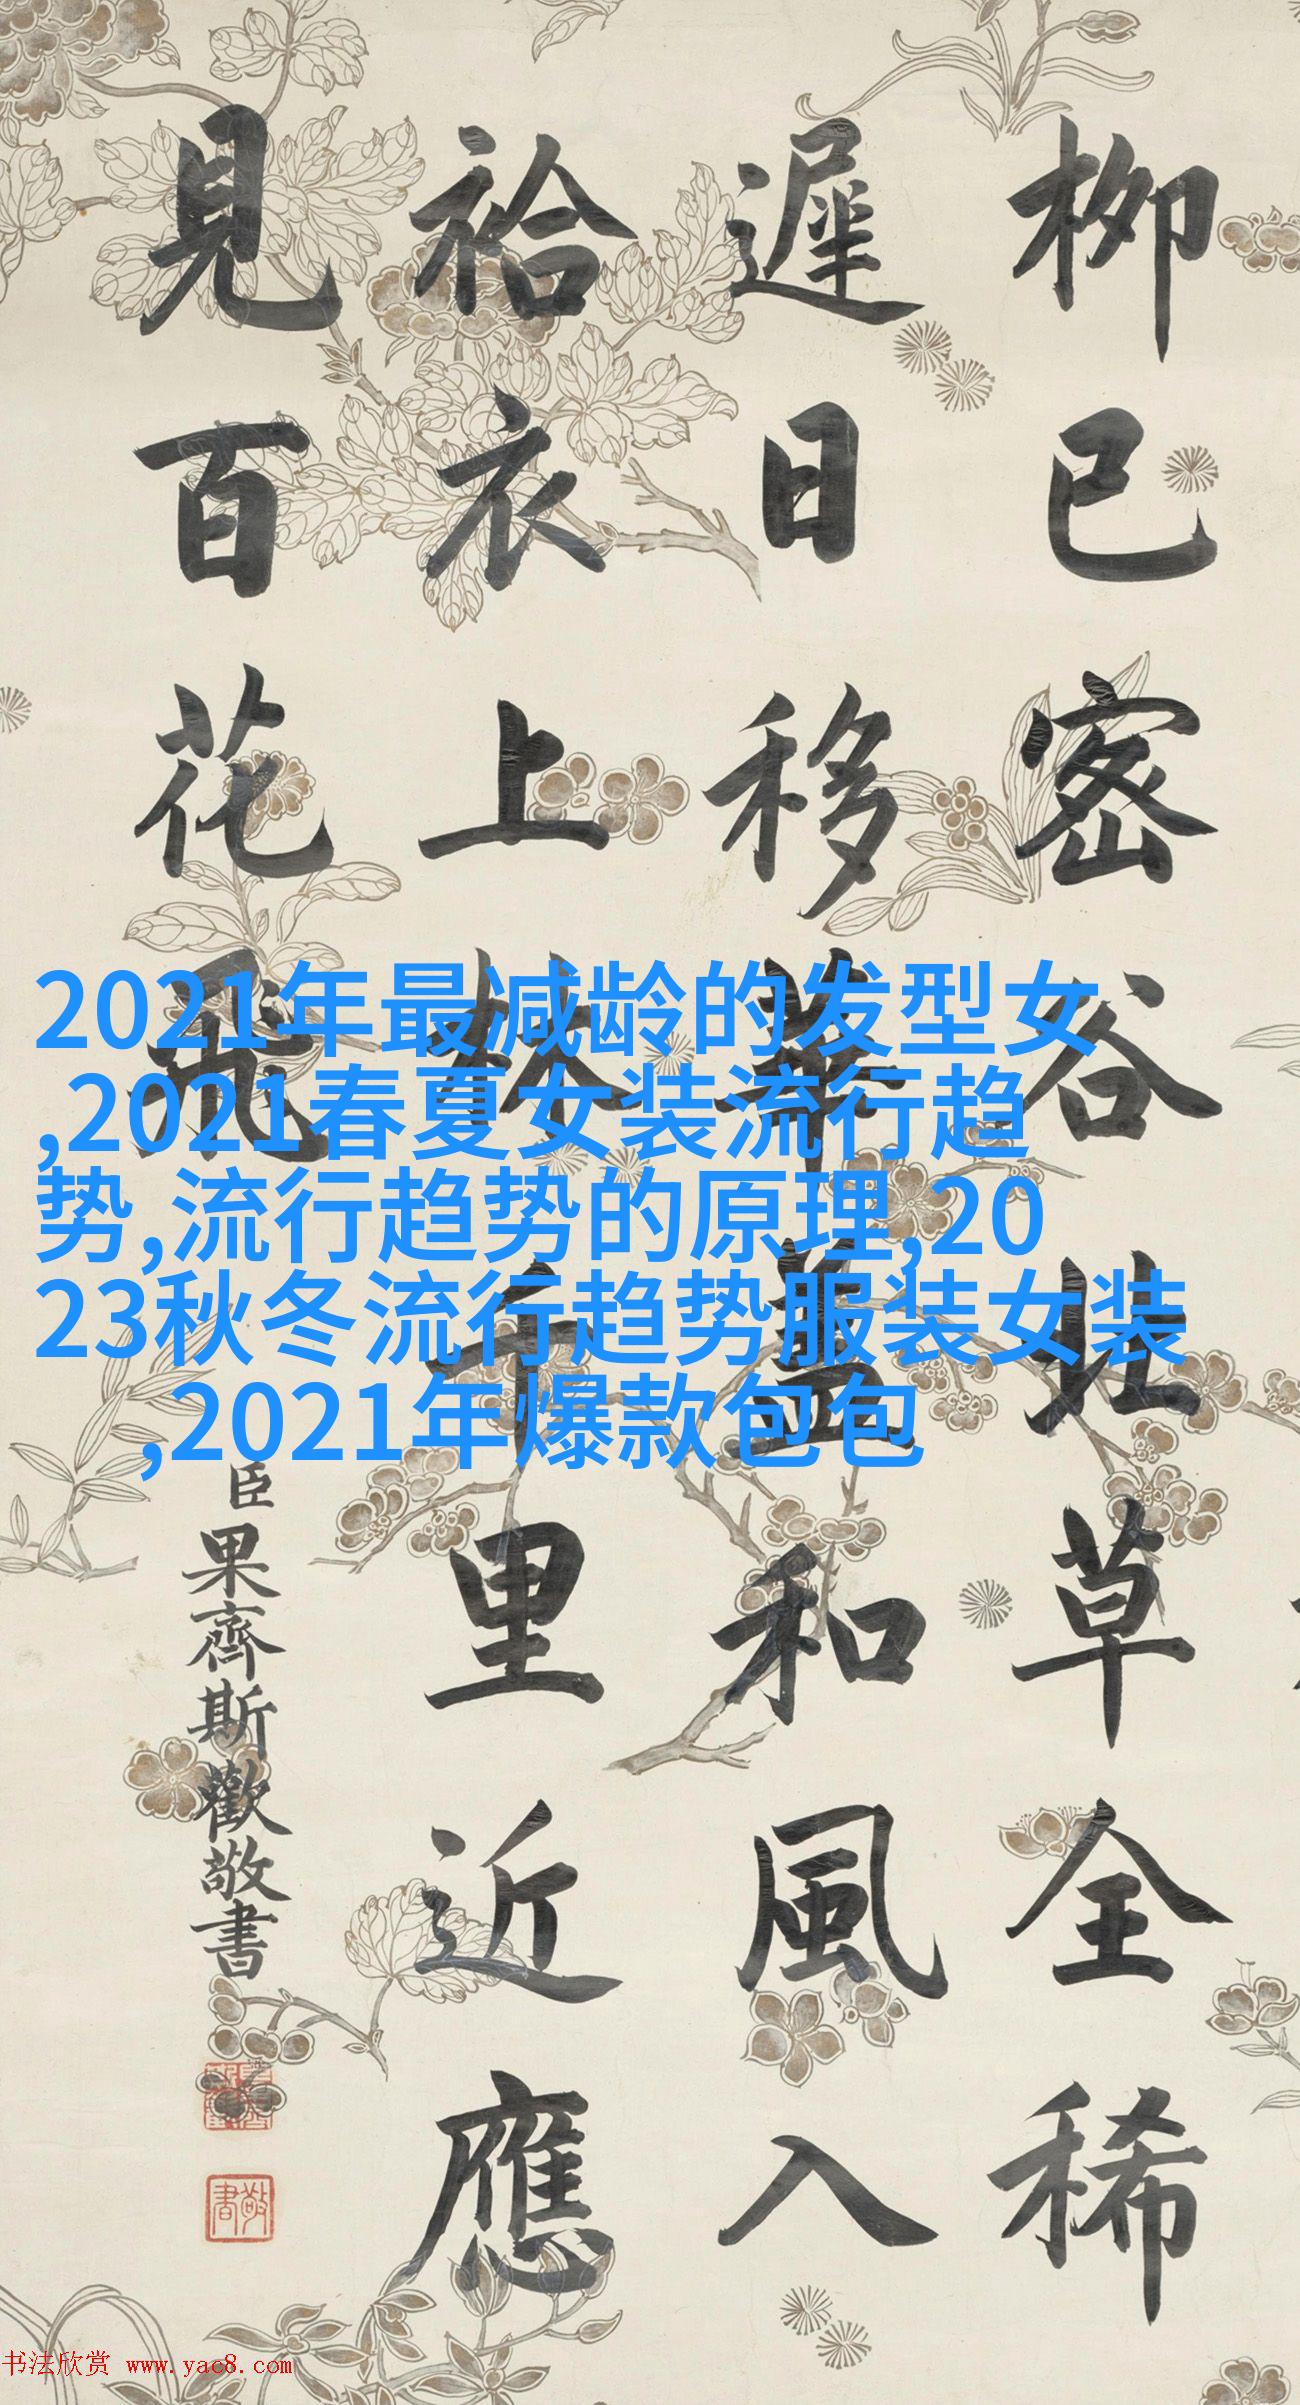 柳已密谷北草全稀
遲日移華蓋和風入
袷衣上林千里近應
見百花飛
臣果齊斯歡敬書
敬書
2021年最减龄的发型女
,2021春夏女装流行趋
势,流行趋势的原理,20
23秋冬流行趋势服装女装
,2021年爆款包包
书法欣赏 www.yac8.com